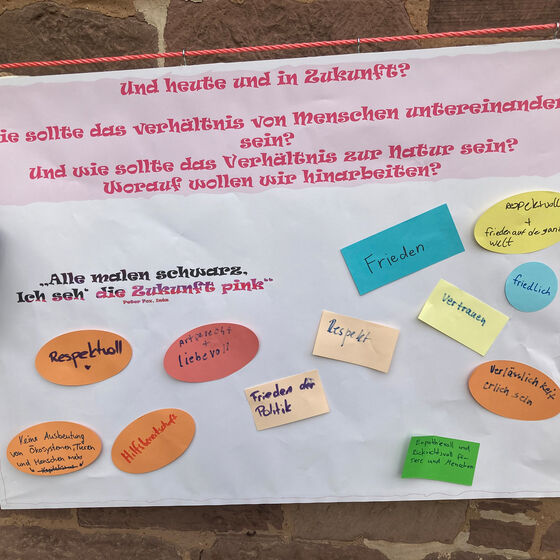 Und heute und in Zukunft?
ie sollte das verhältnis von Menschen untereinander
sein?
Und wie sollte das Verhältnis zur Natur sein?
Worauf wollen wir hinarbeiten?
„Alle malen schwarz,
Ich seh' die Zukunft pink"
Peter Fox,
Frieden
Respektvoll
+
frieden auf de ganz
welt
friedlich
Vertrauen
Respekt
Respektvoll
Artgerecht
+
liebevoll
Frieden der
Politik
Verlässlichkeit
erlich sein
Keine Ausbeutung
von Ökosystemen, Tieren
und Menschen mehr
Hilfsbereitschaft
Empathievoll und
Rücksichtsvoll für
Tiere und Menschen